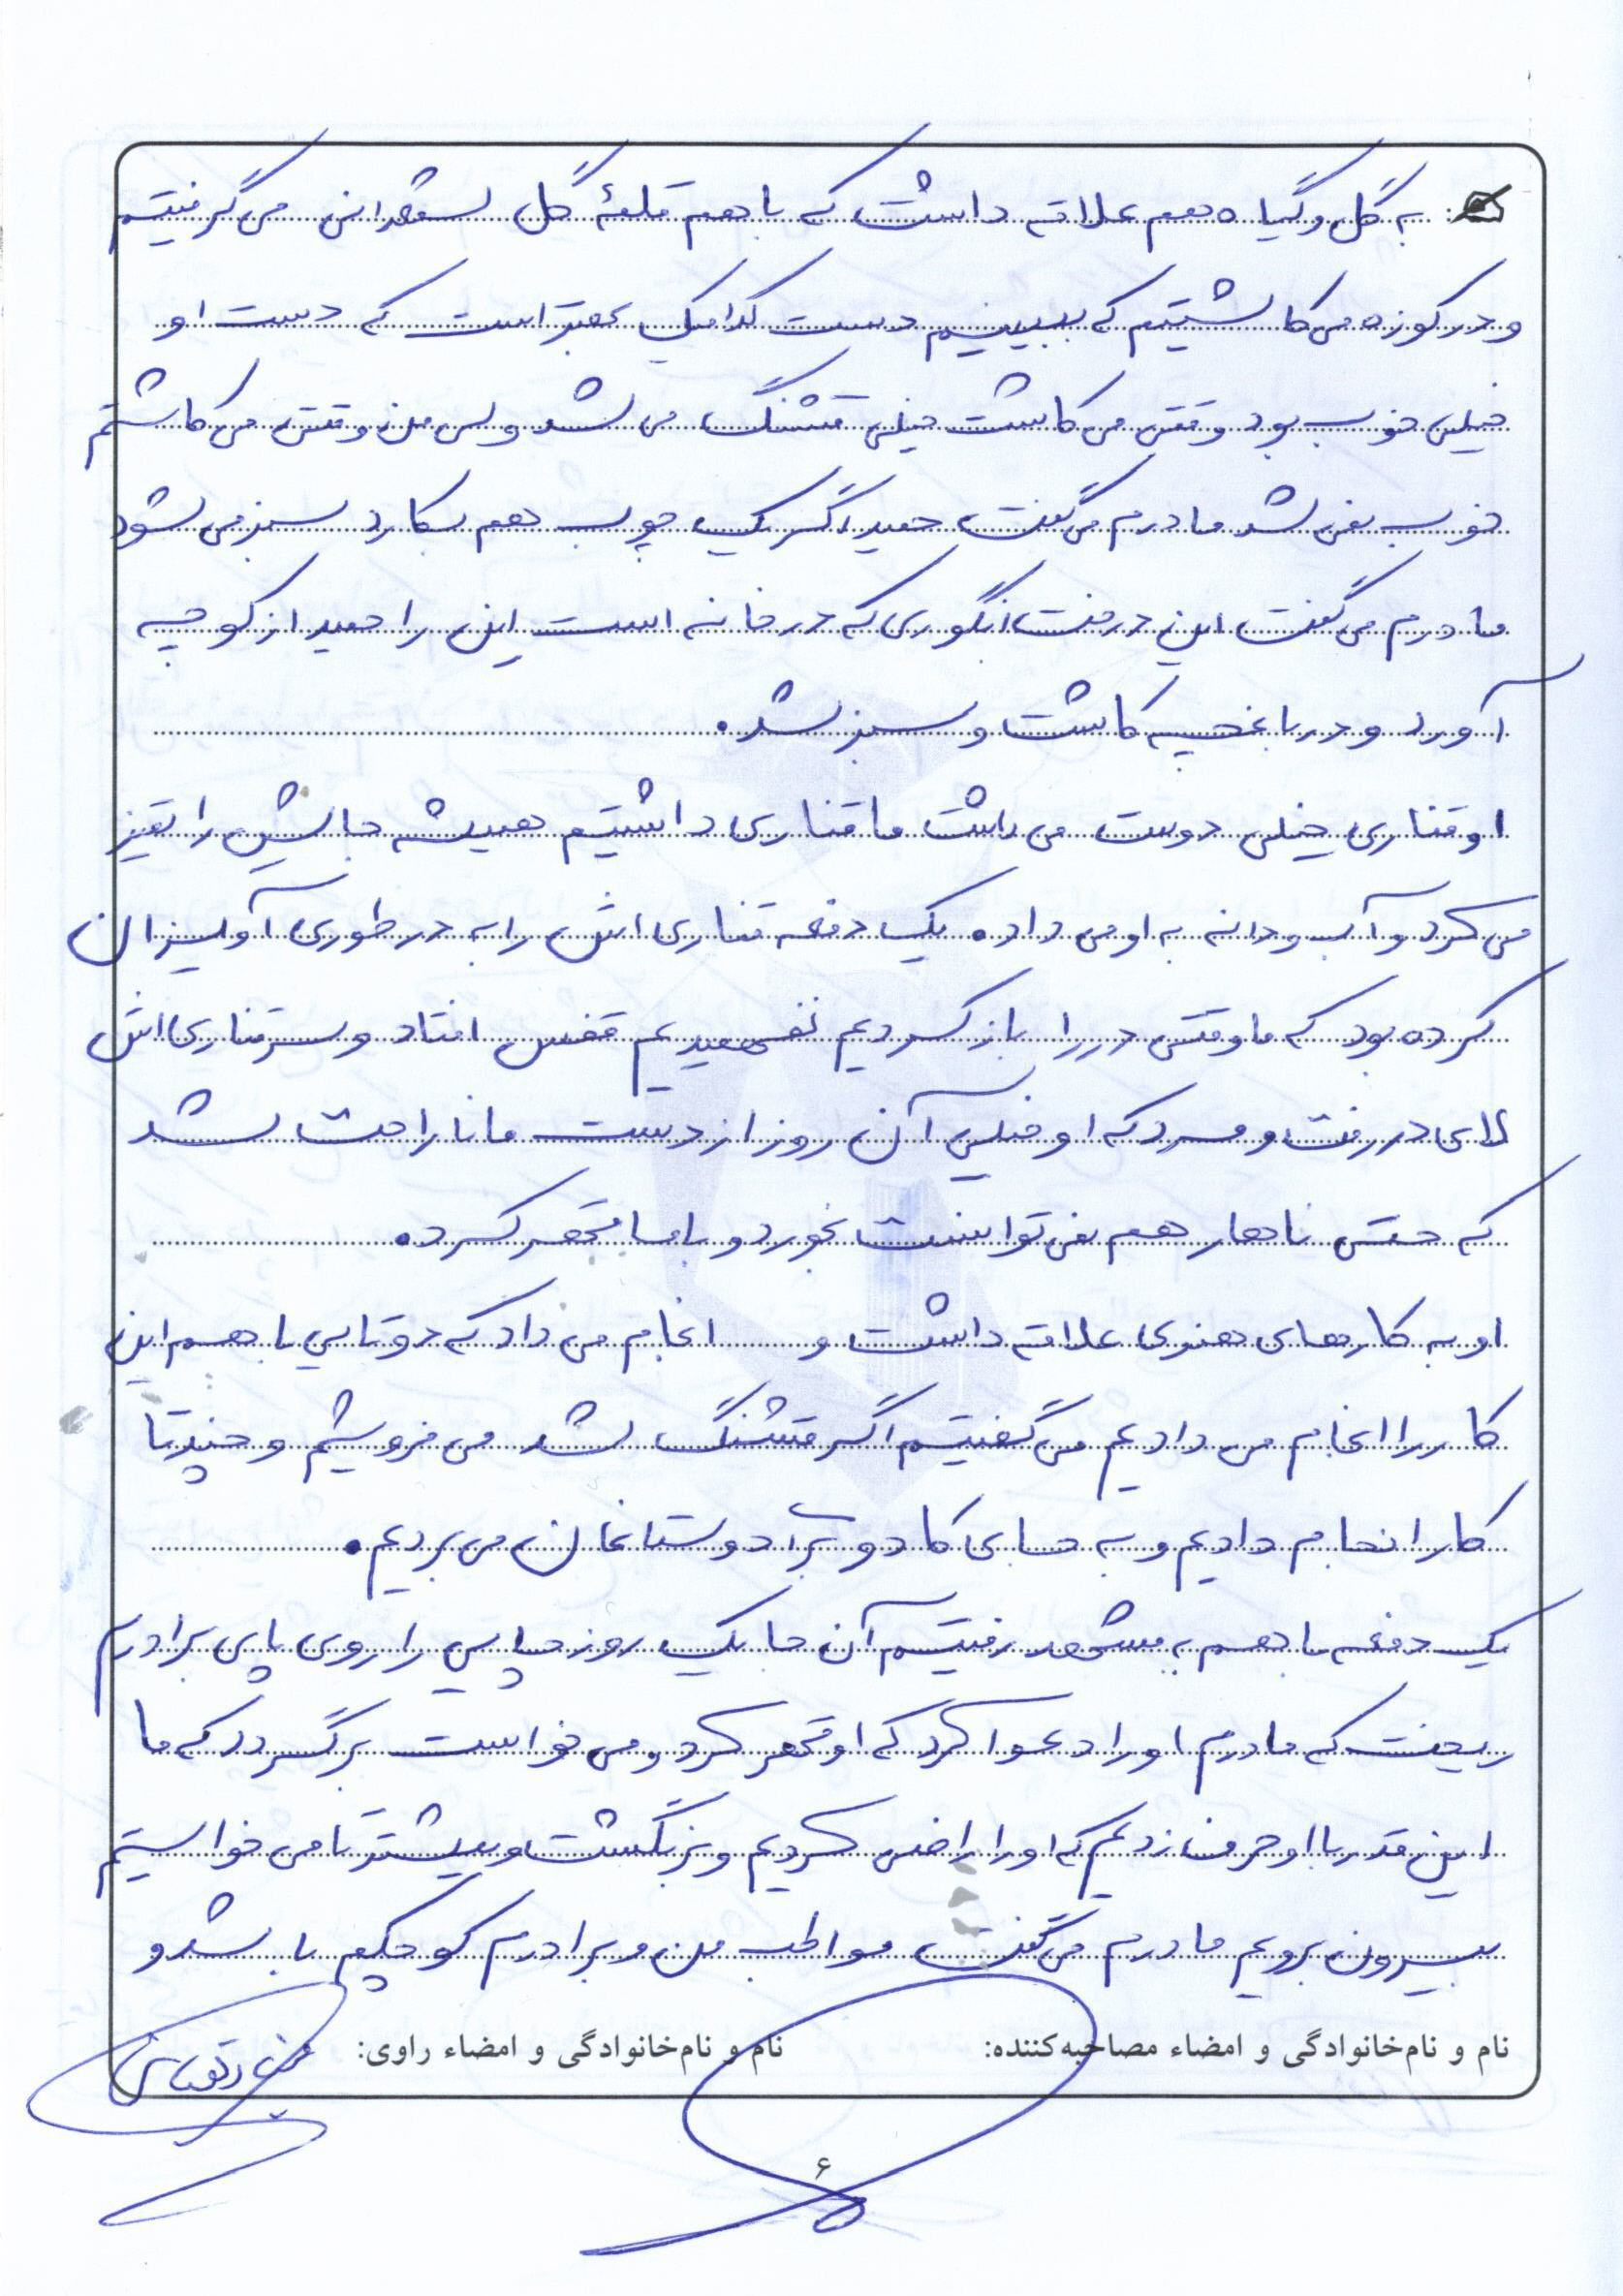 به گل و گیاه هم علاقه داشت که با هم قلمۀ گل شمعدانی می گرفتیم
و در کوزه می کاشتیم که ببینیم دست کدامیک بهتر است که دست او
خیلی خوب بود وقتی می کاشت خیلی قشنگ می شد ولی من وقتی می کاشتم
خوب نمی شد مادرم می گفت حمید اگر یک چوب هم بکارد سبز می شود
مادرم می گفت این درخت انگوری که در خانه است این را حمید از کوچه
آورد و در باغچه کاشت و سبز شد.
او قناری خیلی دوست می داشت ما قناری داشتیم همیشه جایش را تمیز
می کرد و آب و دانه به او می داد. یک دفعه قناری اش را به در طوری آویزان
کرده بود که ما وقتی در را باز کردیم نفهمیدیم قفس افتاد و سر قناری اش
لای در رفت و مرد که او خیلی آن روز از دست ما ناراحت شد
که حتی ناهار هم نمی توانست بخورد و با ما قهر کرد.
او به کارهای هنری علاقه داشت و انجام می داد که دوتایی با هم این
کار را انجام می دادیم می گفتیم اگر قشنگ شد می فروشیم و چند تا
کار انجام دادیم و به جای کادو برا دوستانمان می بردیم.
یک دفعه با هم به مشهد رفتیم آن جا یک روز چایی را روی پای برادرم
ریخت که مادرم او را دعوا کرد که او قهر کرد و می خواست برگردد که ما
این قدر با او حرف زدیم که او را راضی کردیم و برگشت و بیشتر تا می خواستیم
بیرون برویم مادرم می گفت مواظب من و برادرم کوچکم باشد و
نام و نام‌خانوادگی و امضاء مصاحبه‌کننده: نام و نام‌خانوادگی و امضاء راوی:
۶